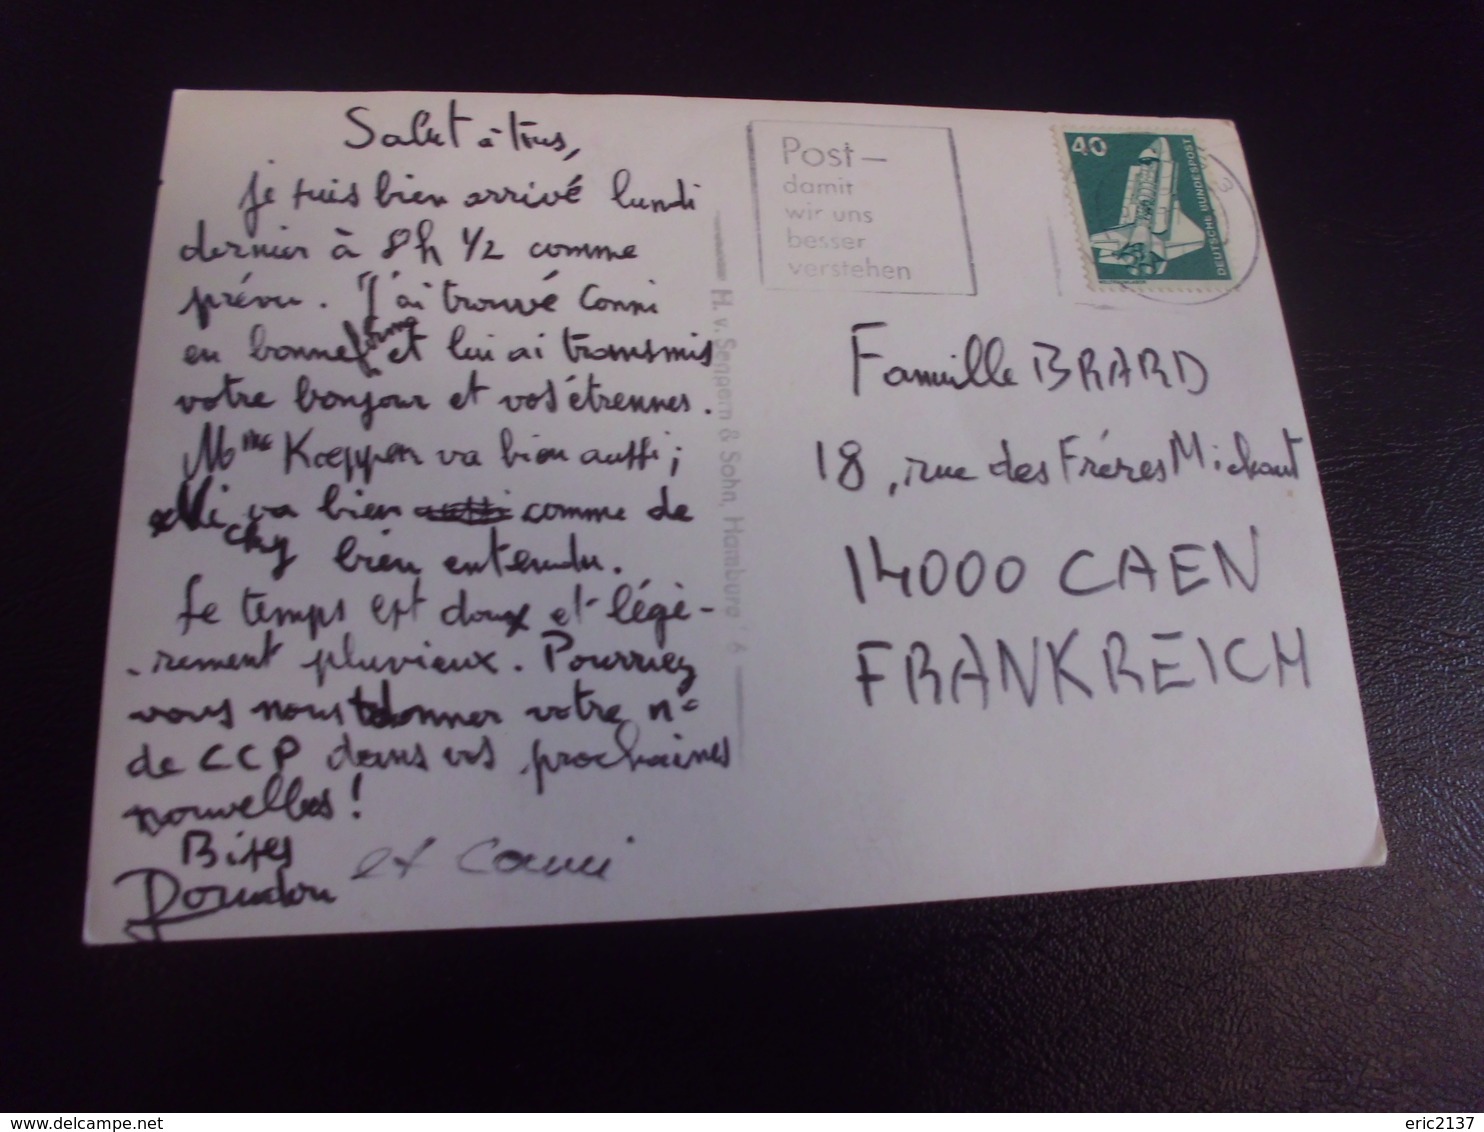 Salut à tous,
je suis bien arrivé lundi
dernier à 8h 1/2 comme
prévu. J'ai trouvé Conni
en bonne forme et lui ai transmis
votre bonjour et vos étrennes.
Mme Kœppen va bien aussi;
Micky va bien aussi comme de
bien entendu.
Le temps est doux et légè-
-rement pluvieux. Pourriez
vous nous donner votre n°
de CCP dans vos prochaines
nouvelles!
Bises
et Conni
H. v. Seppern & Sohn, Hamburg 6
Post—
damit
wir uns
besser
verstehen
40
DEUTSCHE BUNDESPOST
3
Famille BRARD
18, rue des Frères Michaut
14000 CAEN
FRANKREICH
eric2137